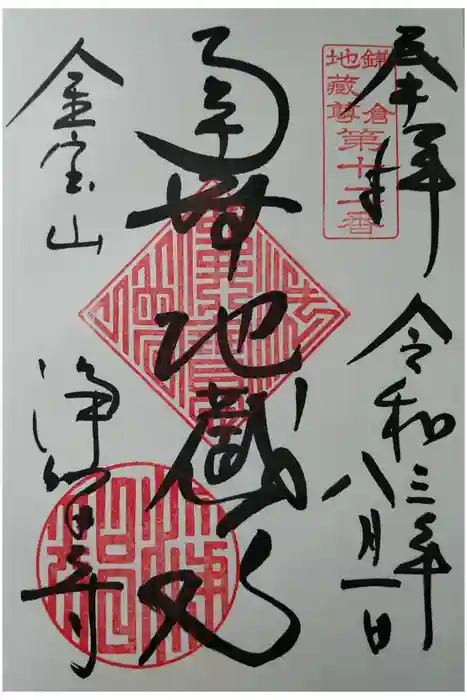 奉拝
令和三年八月一日
鎌倉
地藏尊
第十二番
南無地蔵
金宝山
浄智寺